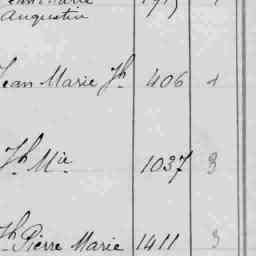 Augustin
Jean Marie Jh. 406
Jh. Mie. 1037 3
Jh. Pierre Marie 1411 3